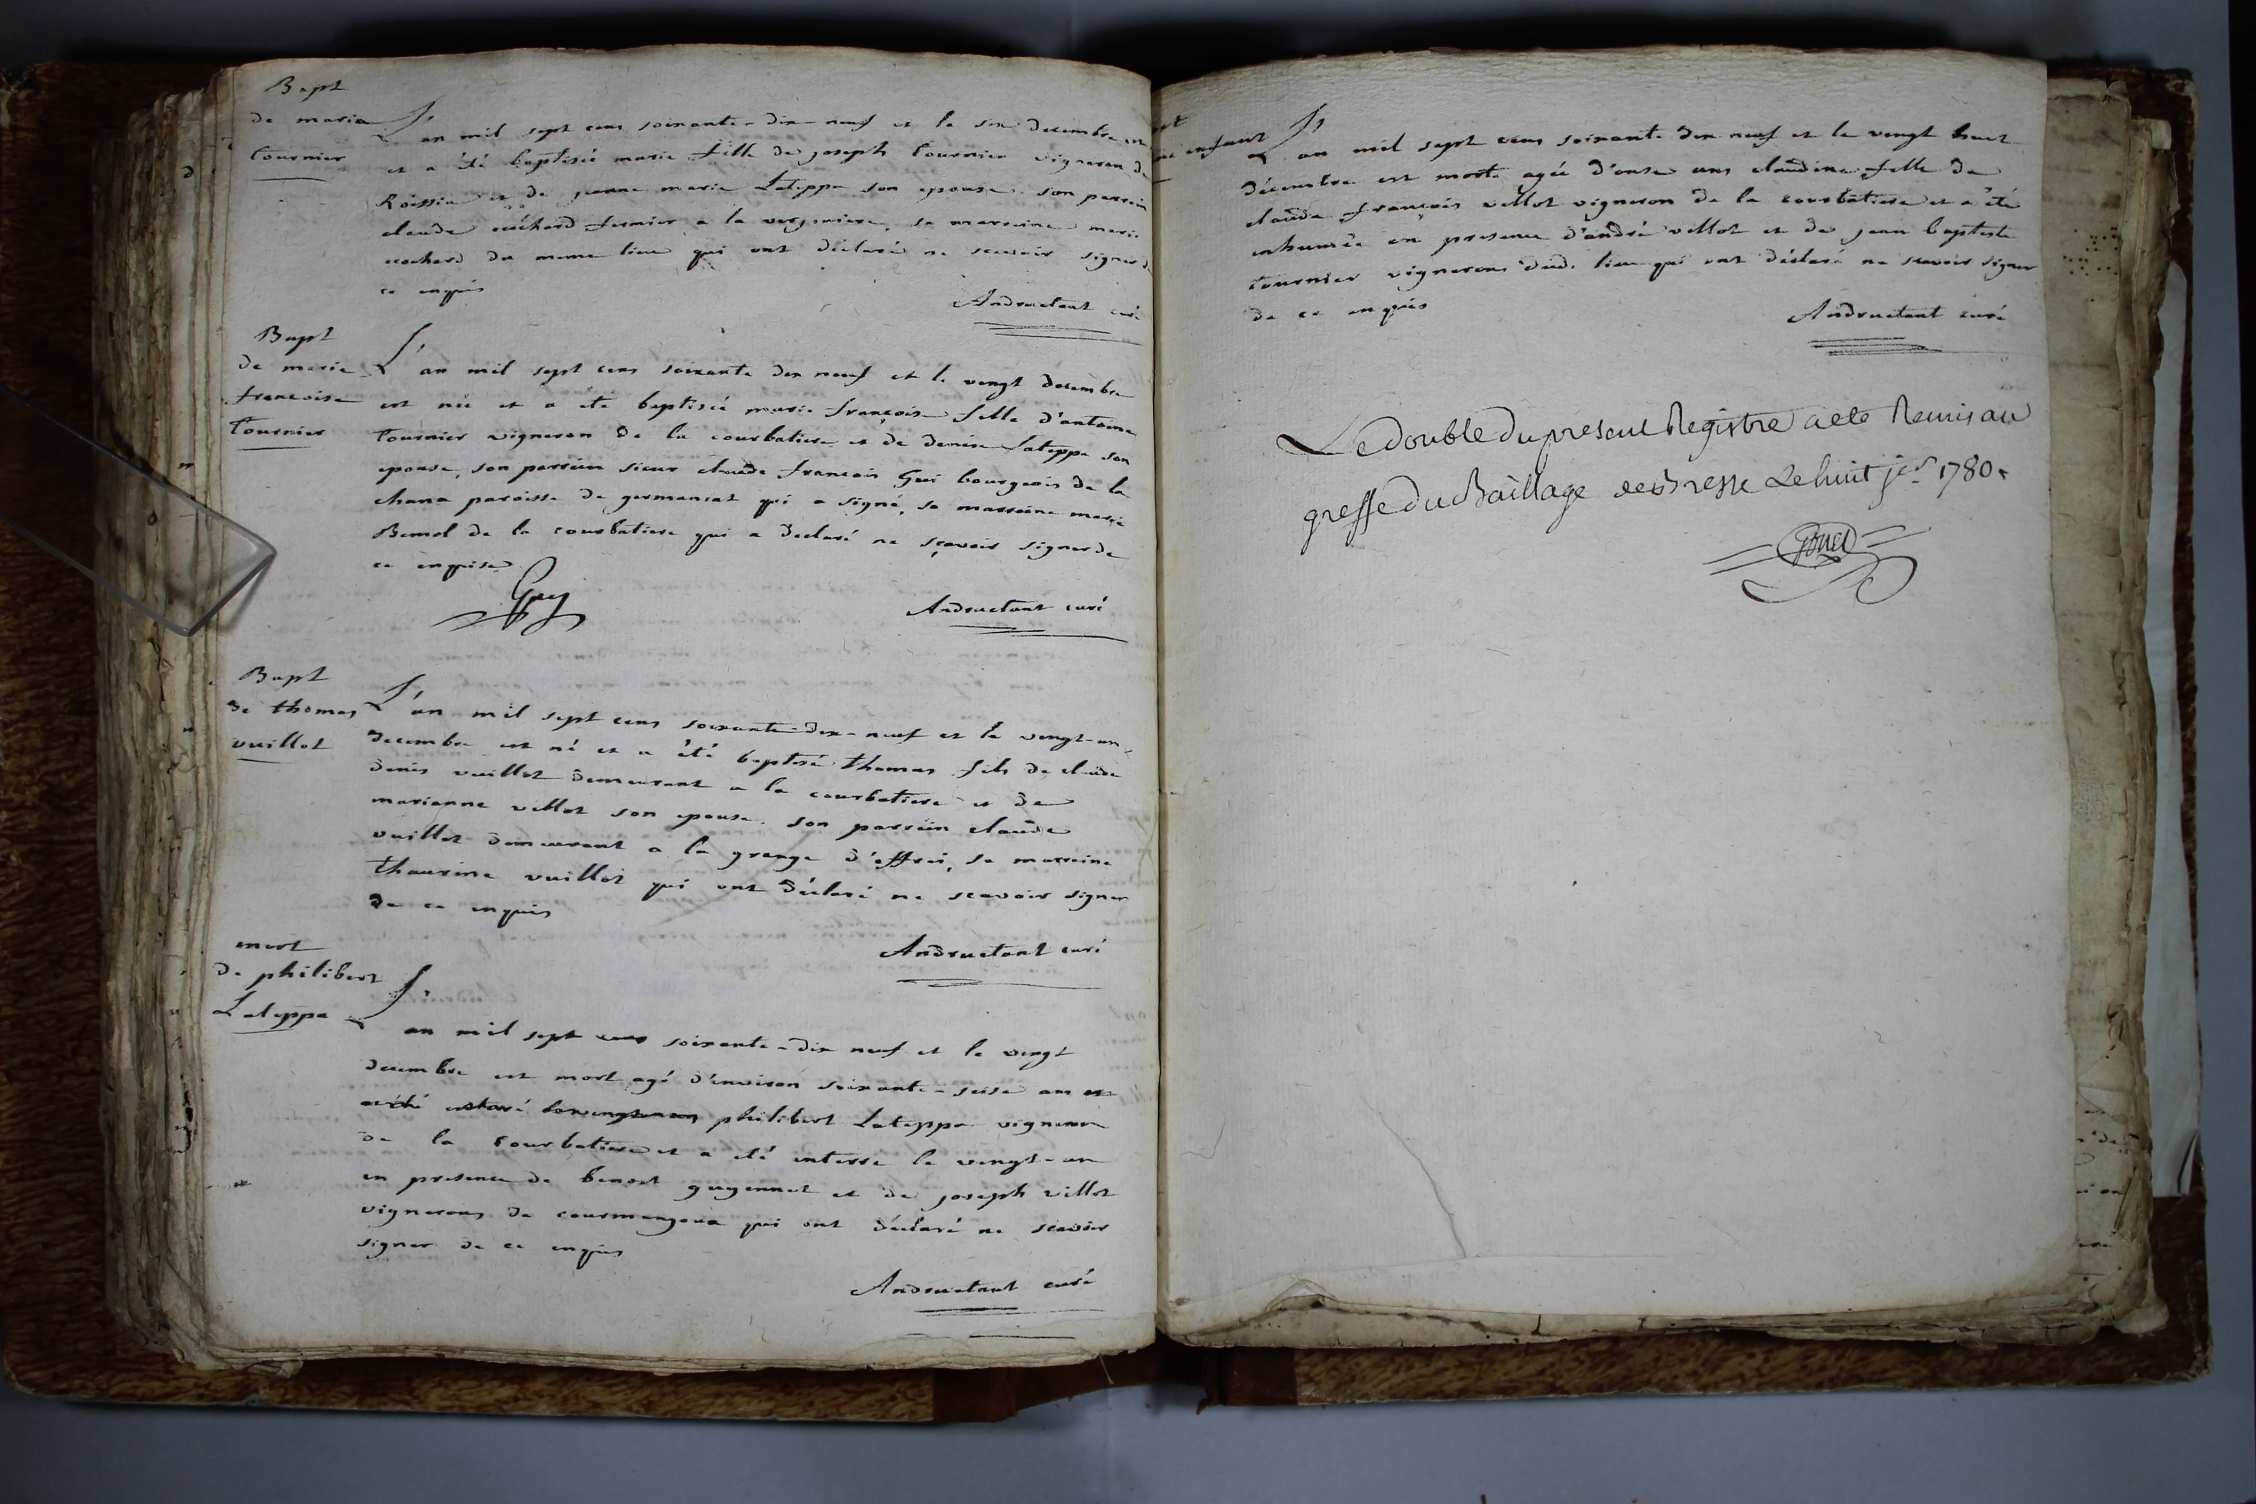 Bapt
de marie
tournier
L'an mil sept cens soixante-dix-neuf et le six decembre est
et a été baptisée marie fille de joseph tournier vigneron de
Roissia et de jeanne marie Lateppe son epouse. son parrein
claude cochard fermier a la verjoniere, sa marreine marie
cochard du meme lieu qui ont déclaré ne sçavoir signer d
ce enquis
Andructant curé
Bapt
de marie
françoise
tournier
L'an mil sept cens soixante dix neuf et le vingt decembre
est née et a été baptisée marie françoise fille d'antoine
tournier vigneron de la courbatiere et de denise Lateppe son
epouse, son parrein sieur claude francois Gui bourgeois de la
chana paroisse de germaniat qui a signé, sa marreine marie
de la courbatiere qui a declaré ne sçavoir signer de
ce enquise
Guy
Andructant curé
Bapt
de thomas
vuillot
L'an mil sept cens soixante-dix-neuf et le vingt-un
decembre est né et a été baptisé thomas fils de claude
denis vuillot demeurant a la courbatiere et de
marianne villot son epouse. son parrein claude
vuillot demeurant a la grange d'effrei, sa marreine
thaurine vuillot qui ont déclaré ne scavoir signer
de ce enquis
Andructant curé
mort
de philibert
Lateppe
L'an mil sept cens soixante-dix neuf et le vingt
decembre est mort agé d'environ soixante-seise ans et
a été philibert Lateppe vigneron
de la courbatiere et a été enterré le vingt-un
en presence de benoit guyennet et de joseph villot
vignerons de courmangoux qui ont déclaré ne scavoir
signer de ce enquis
Andructant curé
enfant
L'an mil sept cens soixante dix neuf et le vingt huit
décembre est morte agée d'onse ans claudine fille de
claude françois villot vigneron de la courbatiere et a été
inhumée en presence d'andré villot et de jean baptiste
tournier vignerons dud. lieu qui ont déclaré ne scavoir signer
de ce enquis
Andructant curé
Le double du present Registre a ete Remis au
greffe du Baillage de Bresse Le huit jer 1780.